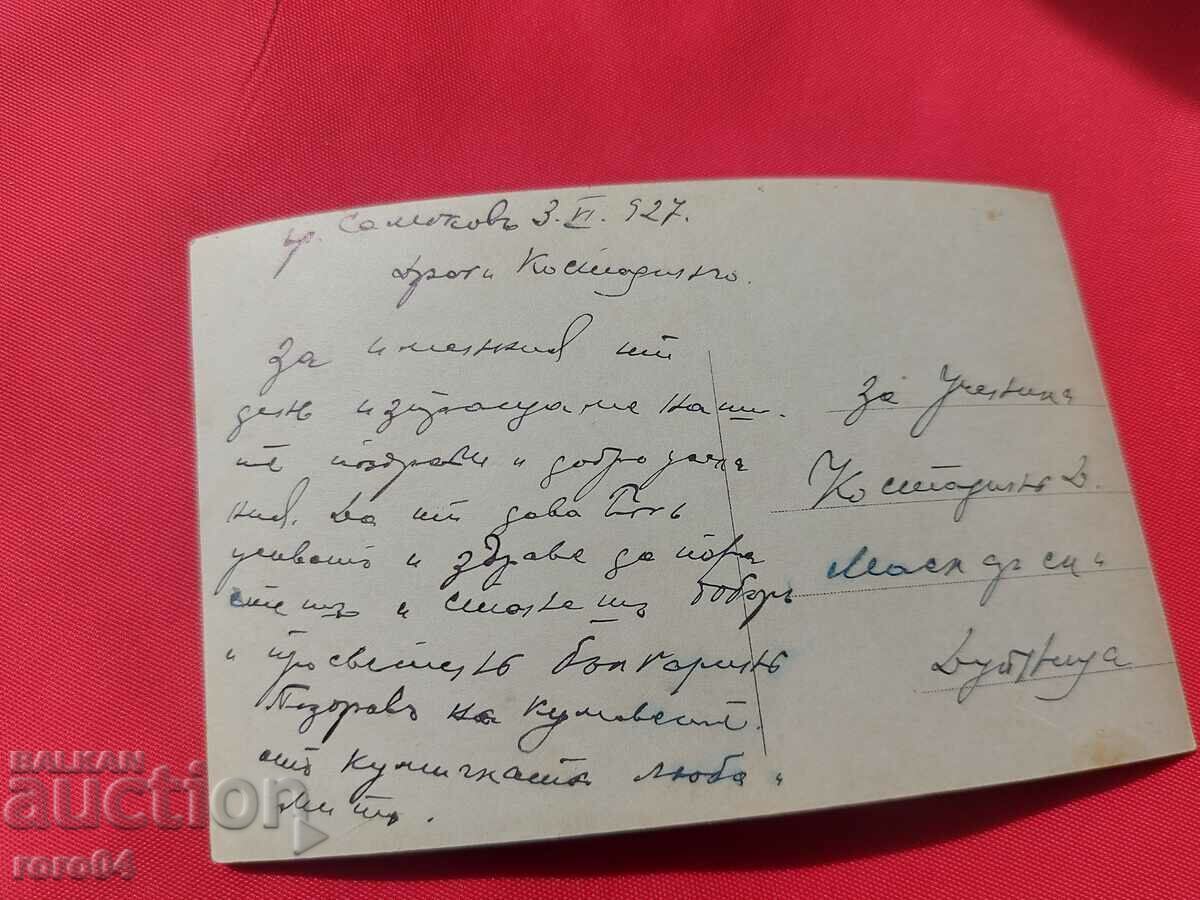 гр. Самоковъ 3.VI.927.
Драги Костадинчо.
За именния ти
день изпращаме наши.
те поздрави и добро
ния. Да ти дава Богъ
и здраве да пора
стешъ и станешъ добъръ
и просветенъ българинъ
Поздравъ на кумовете.
отъ кумичката Люба и
Мито.
За Ученика
Костадинъ Д.
Дупница
BALKAN
auction
roro84